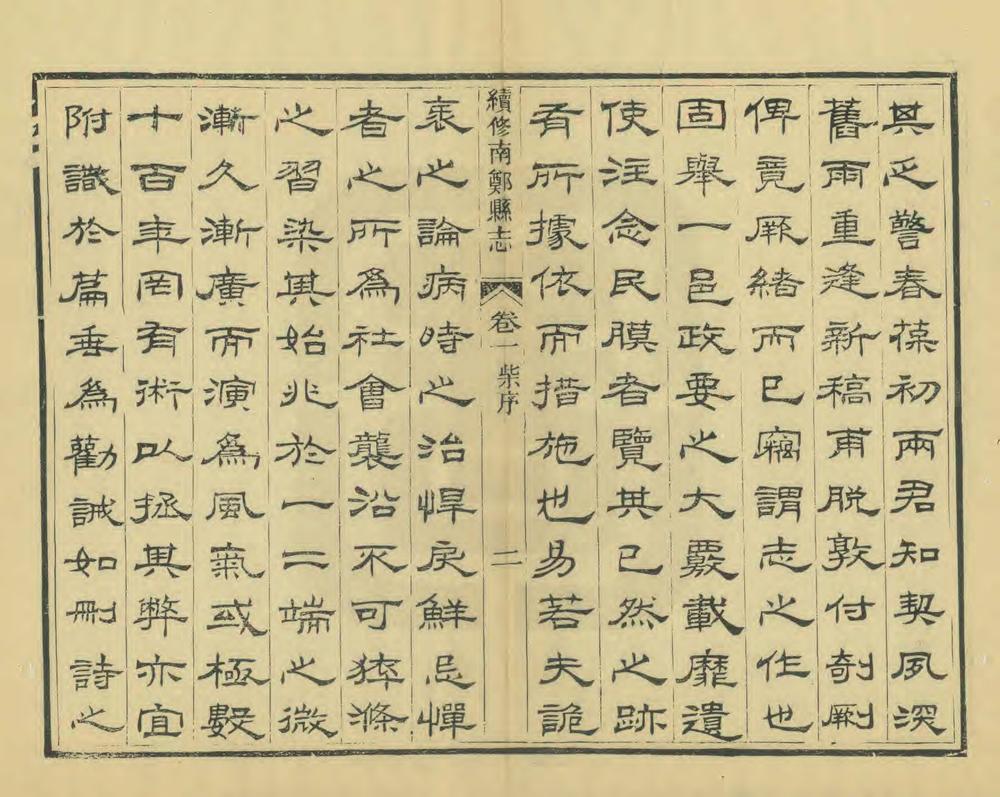 其乏警春葆初兩君知契夙深
舊雨重逢新稿甫脫敦付剞劂
俾竟厥緒而已竊謂志之作也
固舉一邑政要之大覈載靡遺
使注念民膜者覽其已然之跡
有所據依而措施也易若夫詭
續修南鄭縣志 卷一 柴序 二
衺之論病時之治悍戾鮮忌憚
者之所爲社會襲沿不可猝滌
之習染其始兆於一二端之微
漸久漸廣而演爲風氣或極數
十百年罔有術以拯其弊亦宜
附識於篇垂爲勸誡如刪詩之